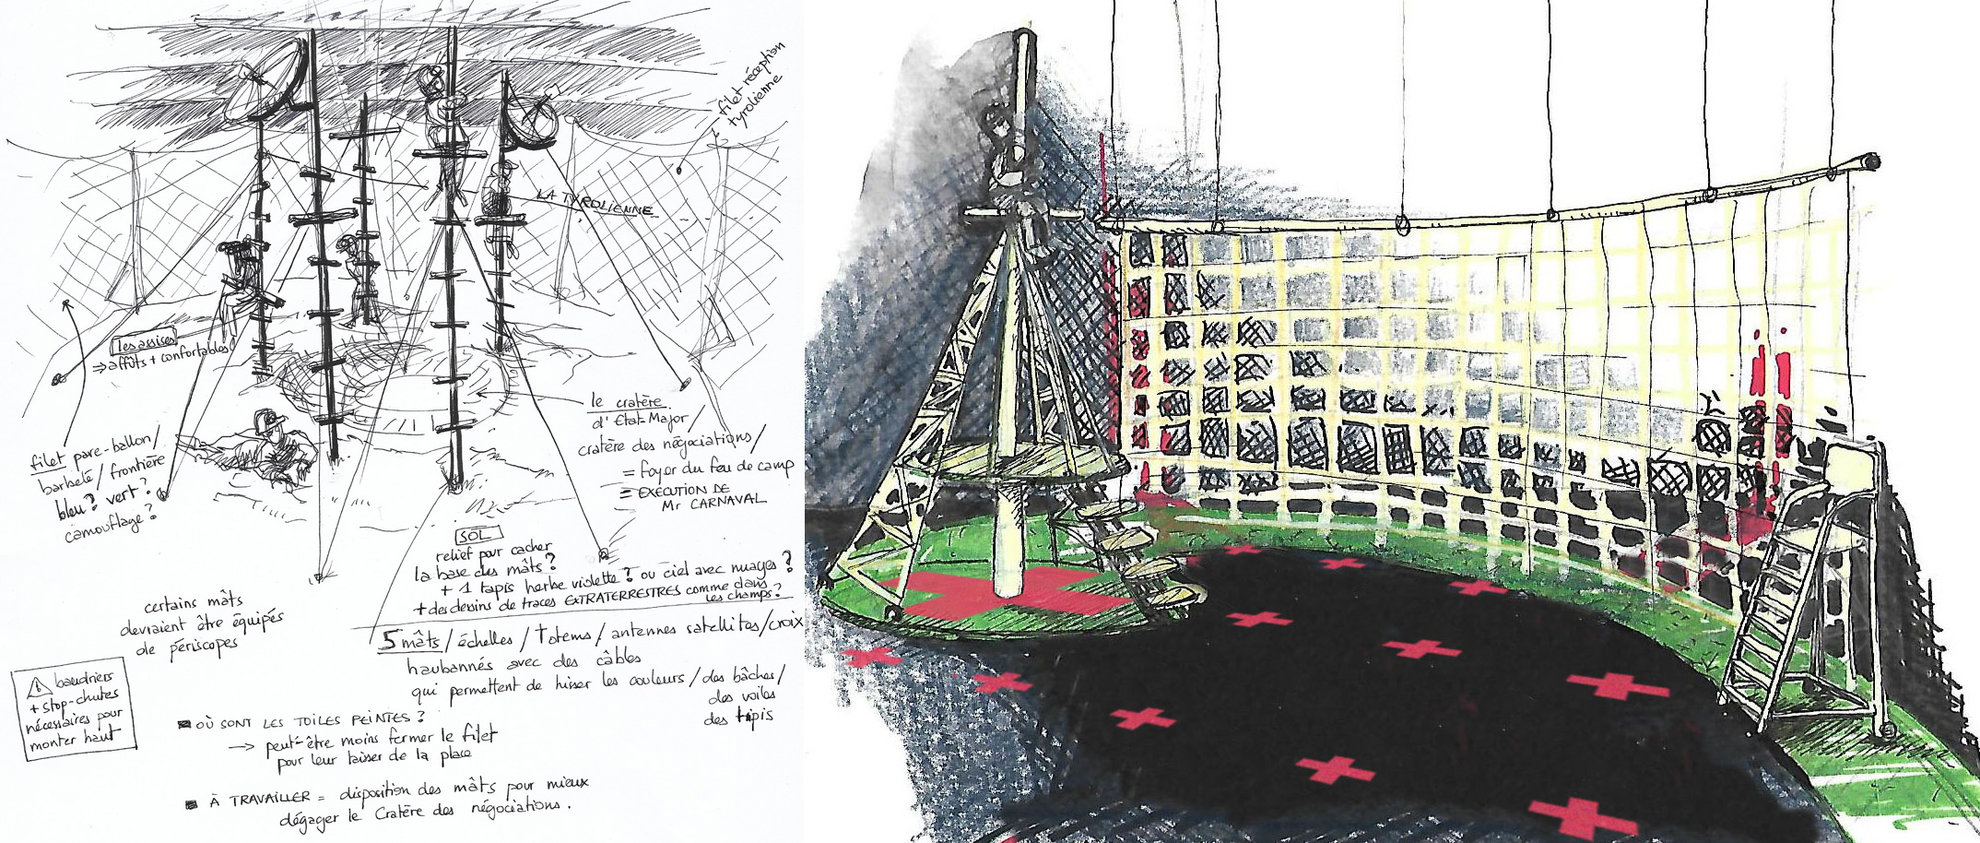 filet réception
tyrolienne
LA TYROLIENNE
les assises
⇒ affûts + confortables
le cratère
d'Etat-Major /
cratère des négociations /
= foyer du feu de camp
= EXECUTION DE
Mr CARNAVAL
filet pare-ballon /
barbelé / frontière
bleu? vert?
camouflage?
SOL
relief pour cacher
la base des mâts?
+ 1 tapis herbe violette? ou ciel avec nuages?
+ des dessins de traces EXTRATERRESTRES comme dans
les champs?
certains mâts
devraient être équipés
de périscopes
5 mâts / échelles / Totems / antennes satellites / croix
haubannés avec des câbles
qui permettent de hisser les couleurs / des bâches /
des voiles
des tapis
! baudriers
+ stop-chutes
nécessaires pour
monter haut
OÙ SONT LES TOILES PEINTES ?
→ peut-être moins fermer le filet
pour leur laisser de la place
À TRAVAILLER = disposition des mâts pour mieux
dégager le Cratère des négociations.